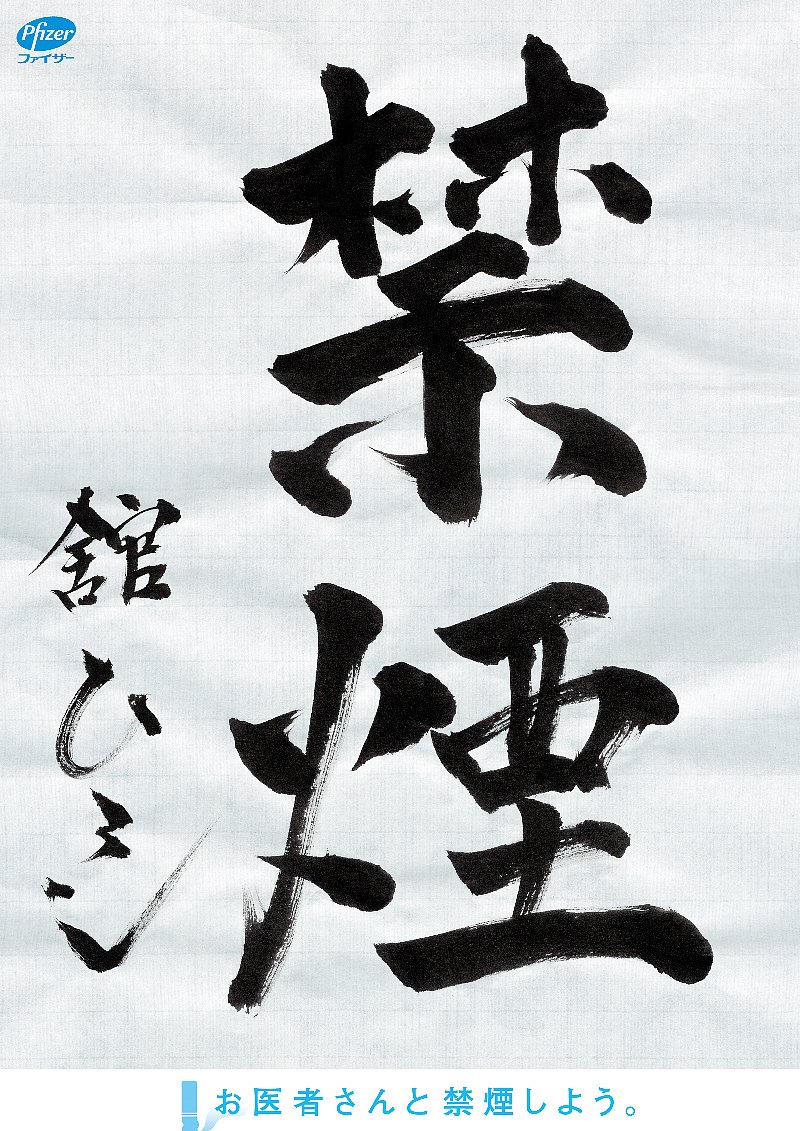 Pfizer
ファイザー
禁煙
舘ひろし
お医者さんと禁煙しよう。